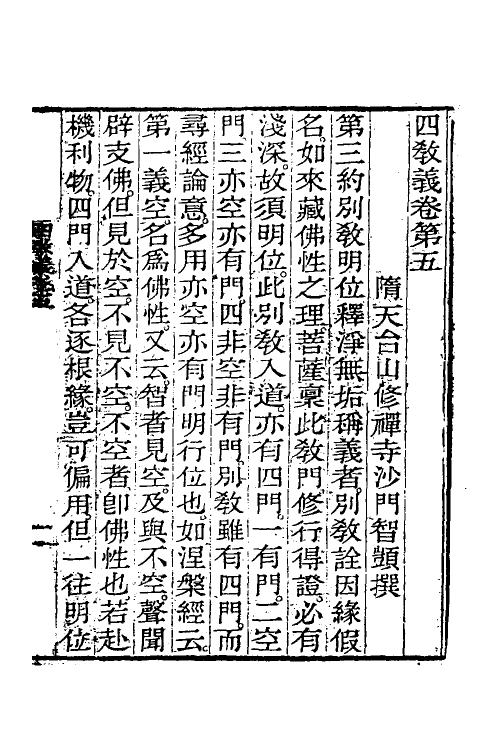 四教義卷第五
隋天台山修禪寺沙門智顗撰
第三約別教明位釋淨無垢稱義者。別教詮因緣假
名。如來藏佛性之理。菩薩稟此教門修行得證。必有
淺深。故須明位。此別教入道。亦有四門。一有門。二空
門。三亦空亦有門。四非空非有門。別教雖有四門。而
尋經論意。多用亦空亦有門明行位也。如涅槃經云。
第一義空。名爲佛性。又云。智者見空。及與不空。聲聞
辟支佛。但見於空。不見不空。不空者卽佛性也。若赴
機利物。四門入道。各逐根緣。豈可偏用。但一往明位
四教義卷五
一